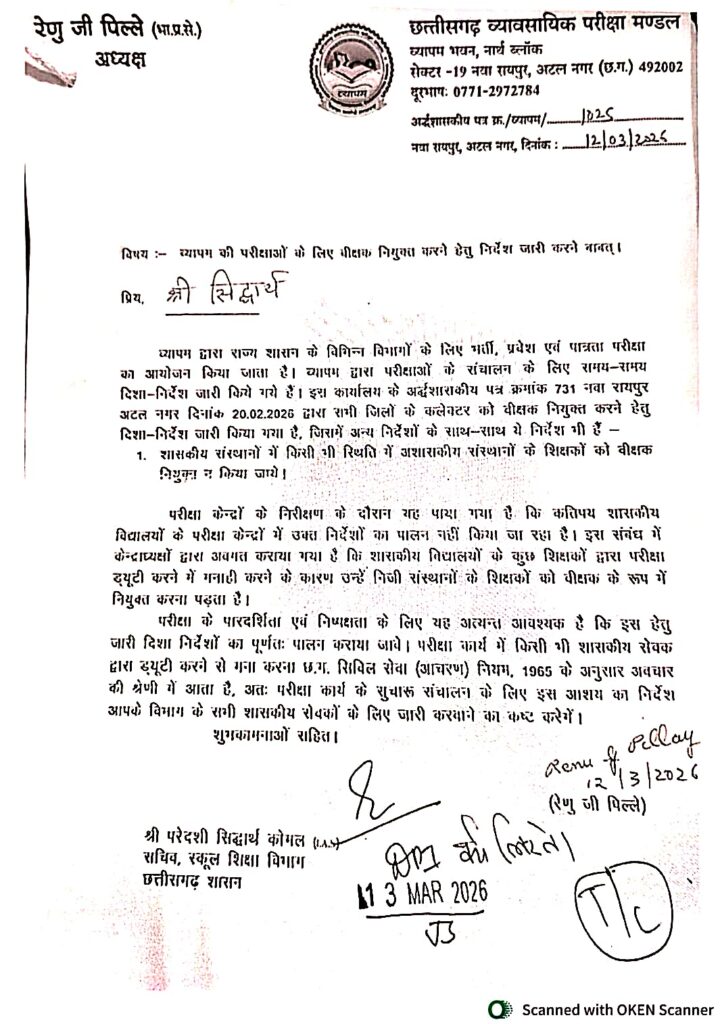 रेणु जी पिल्ले (भा.प्र.से.)
अध्यक्ष
व्यापम
छत्तीसगढ़ व्यावसायिक परीक्षा मण्डल
व्यापम भवन, नार्थ ब्लॉक
सेक्टर -19 नवा रायपुर, अटल नगर (छ.ग.) 492002
दूरभाषः 0771-2972784
अर्द्धशासकीय पत्र क्र./व्यापम/ 1025
नवा रायपुर, अटल नगर, दिनांक : 12/03/2026
विषय :- व्यापम की परीक्षाओं के लिए वीक्षक नियुक्त करने हेतु निर्देश जारी करने बाबत्।
प्रिय, श्री सिद्धार्थ
व्यापम द्वारा राज्य शासन के विभिन्न विभागों के लिए भर्ती, प्रवेश एवं पात्रता परीक्षा
का आयोजन किया जाता है। व्यापम द्वारा परीक्षाओं के संचालन के लिए समय-समय
दिशा-निर्देश जारी किये गये हैं। इस कार्यालय के अर्द्धशासकीय पत्र क्रमांक 731 नवा रायपुर
अटल नगर दिनांक 20.02.2026 द्वारा सभी जिलों के कलेक्टर को वीक्षक नियुक्त करने हेतु
दिशा-निर्देश जारी किया गया है, जिसमें अन्य निर्देशों के साथ-साथ ये निर्देश भी हैं –
1. शासकीय संस्थानों में किसी भी स्थिति में अशासकीय संस्थानों के शिक्षकों को वीक्षक
नियुक्त न किया जाये।
परीक्षा केन्द्रों के निरीक्षण के दौरान यह पाया गया है कि कतिपय शासकीय
विद्यालयों के परीक्षा केन्द्रों में उक्त निर्देशों का पालन नहीं किया जा रहा है। इस संबंध में
केन्द्राध्यक्षों द्वारा अवगत कराया गया है कि शासकीय विद्यालयों के कुछ शिक्षकों द्वारा परीक्षा
ड्यूटी करने में मनाही करने के कारण उन्हें निजी संस्थानों के शिक्षकों को वीक्षक के रूप में
नियुक्त करना पड़ता है।
परीक्षा के पारदर्शिता एवं निष्पक्षता के लिए यह अत्यन्त आवश्यक है कि इस हेतु
जारी दिशा निर्देशों का पूर्णतः पालन कराया जावे। परीक्षा कार्य में किसी भी शासकीय सेवक
द्वारा ड्यूटी करने से मना करना छ.ग. सिविल सेवा (आचरण) नियम, 1965 के अनुसार अवचार
की श्रेणी में आता है, अतः परीक्षा कार्य के सुचारू संचालन के लिए इस आशय का निर्देश
आपके विभाग के सभी शासकीय सेवकों के लिए जारी करवाने का कष्ट करेगें।
शुभकामनाओं सहित।
Renu G Pillay
12/3/2026
(रेणु जी पिल्ले)
श्री परेदशी सिद्धार्थ कोमल (I.A.S)
सचिव, स्कूल शिक्षा विभाग
छत्तीसगढ़ शासन
DPI
13 MAR 2026
T/C
Scanned with OKEN Scanner